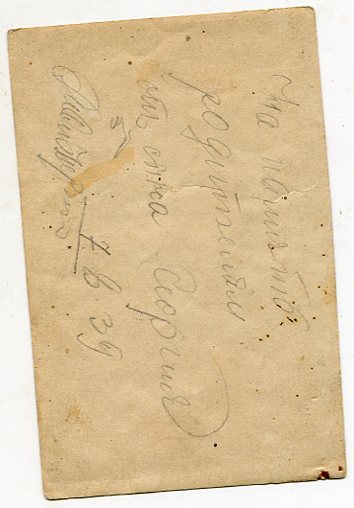 На память
родителям
от сына Георгия
7 V 39